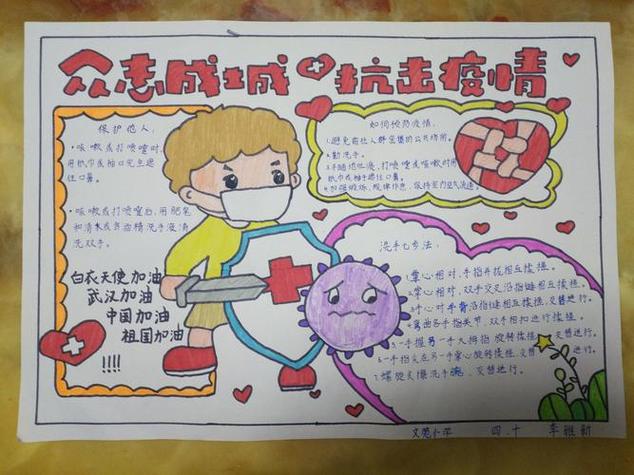 众志成城 抗击疫情
保护他人:
·咳嗽或打喷嚏时,
用纸巾或袖口完全遮
住口鼻。
·咳嗽或打喷嚏后,用肥皂
和清水或含酒精洗手液清
洗双手。
白衣天使加油
武汉加油
中国加油
祖国加油
!!!!
如何预防疫情:
1.避免前往人群密集的公共场所。
2.勤洗手。
3.不随地吐痰,打喷嚏或咳嗽时用
纸巾或袖子遮住口鼻。
4.加强锻炼,规律作息,保持室内空气流通。
洗手七步法:
1.掌心相对,手指并拢相互揉搓。
2.掌心相对,双手交叉沿指缝相互揉搓。
3.手心对手背沿指缝相互揉搓,交替进行。
4.弯曲各手指关节,双手相扣进行揉搓。
5.一手握另一手大拇指旋转揉搓,交替进行。
6.一手指尖在另一手掌心旋转揉搓,交替进行。
7.螺旋式擦洗手腕,交替进行。
文苑小学 四.十 李雅新